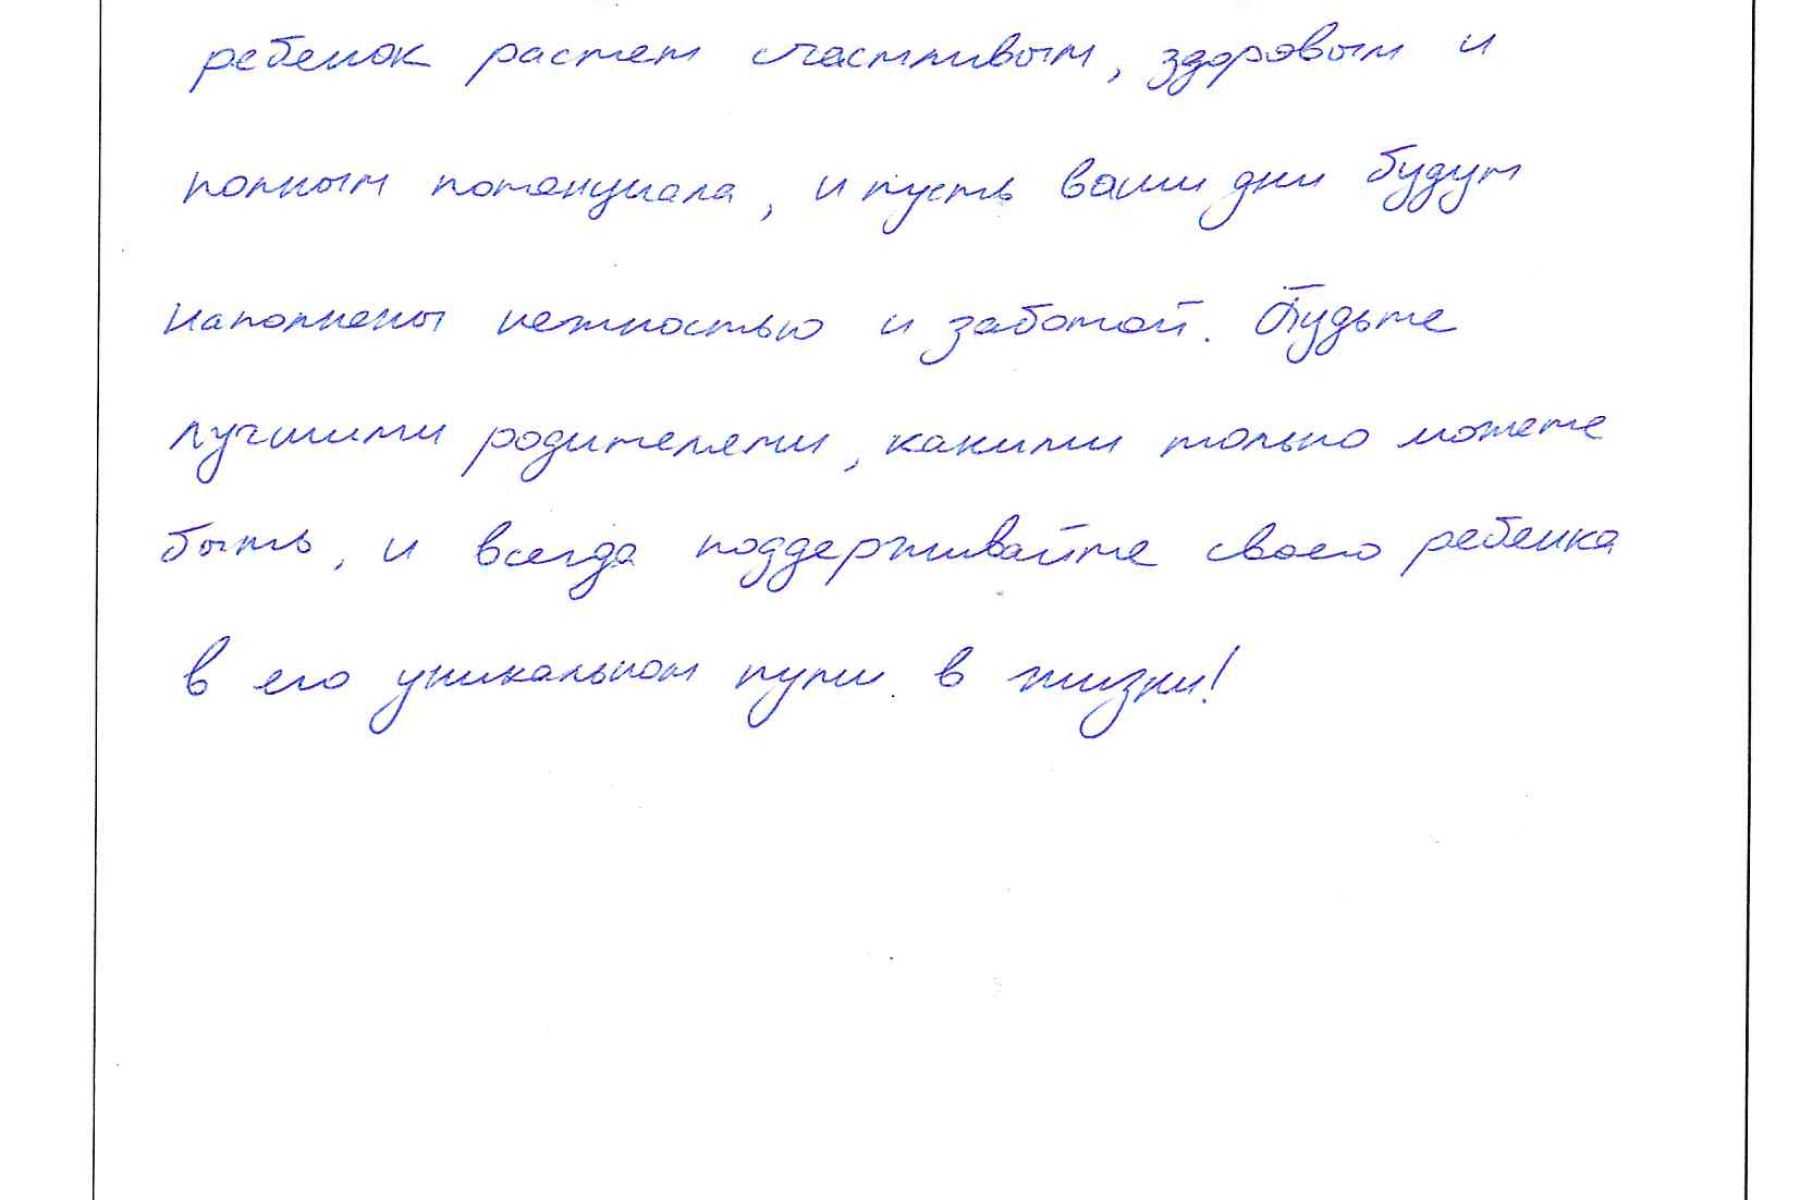 ребенок растет счастливым, здоровым и
полным потенциала, и пусть ваши дни будут
наполнены нежностью и заботой. Будьте
лучшими родителями, какими только можете
быть, и всегда поддерживайте своего ребенка
в его уникальном пути в жизни!